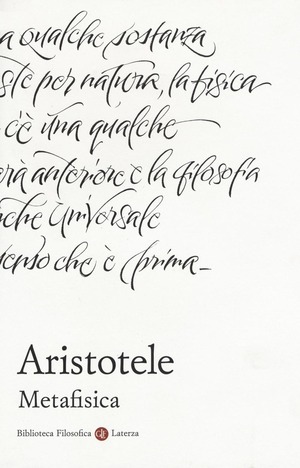 a qualche sostanza
ste per natura, la fisica
c'è una qualche
rà anteriore e la filosofia
che universale
senso che è prima_
Aristotele
Metafisica
Biblioteca Filosofica Laterza